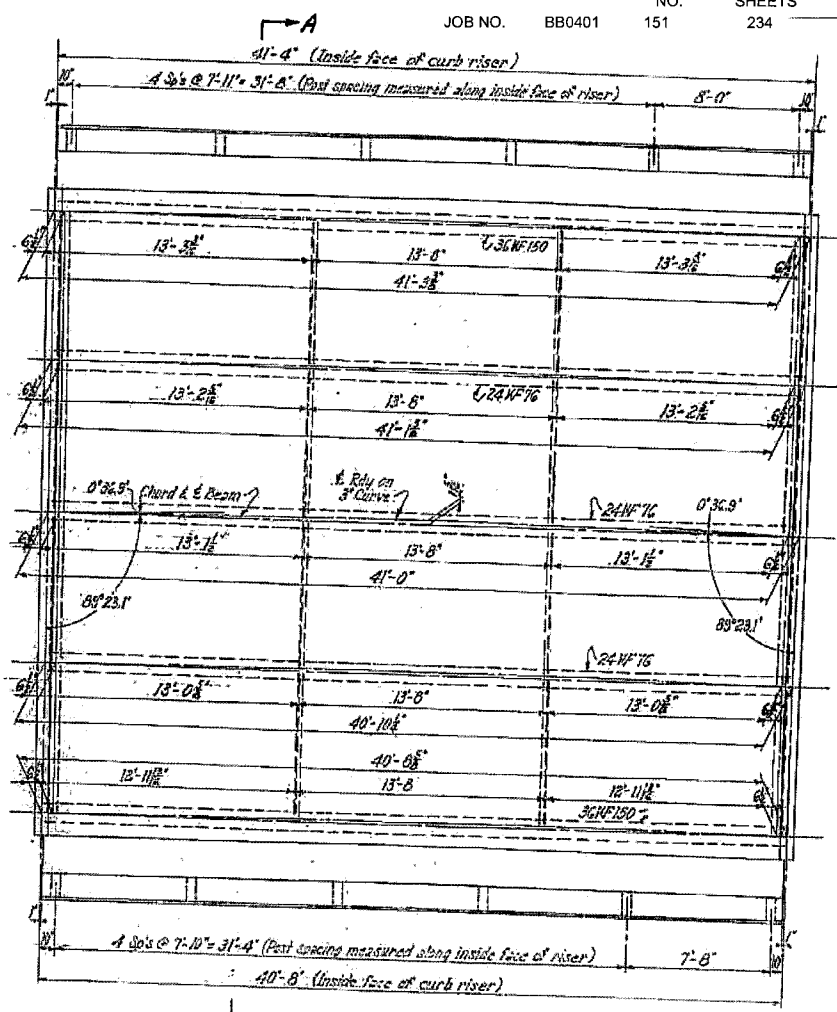 NO. SHEETS
JOB NO. BB0401 151 234
A
41'-4" (Inside face of curb riser)
10" 4 Sp's @ 7'-11" = 31'-8" (Post spacing measured along inside face of riser) 8'-0" 10"
1" 1"
13'-3 13'-8" 36WF150 13'-3
41'-3
24WF76
13'-2 13'-8" 13'-2
41'-1
0°36.9' Chord & ℄ Beam ℄ Rdy on 3° Curve 24WF76 0°36.9'
13'-1½" 13'-8" 13'-1½"
41'-0"
89°23.1' 89°23.1'
24WF76
13'-0 13'-8" 13'-0
40'-10
40'-8
12'-11 13'-8 12'-11
36WF150
1" 1"
10" 4 Sp's @ 7'-10" = 31'-4" (Post spacing measured along inside face of riser) 7'-8" 10"
40'-8" (Inside face of curb riser)